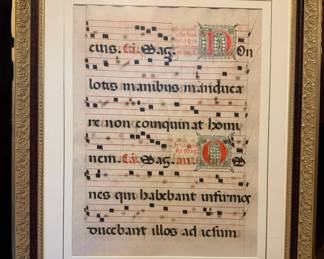 cuis. Ca. Mag. Non
lotis manibus manduca
re non coinquinat homi
nem. Ca. Mag. an. O
nes qui habebant infirmos
ducebant illos ad iesum